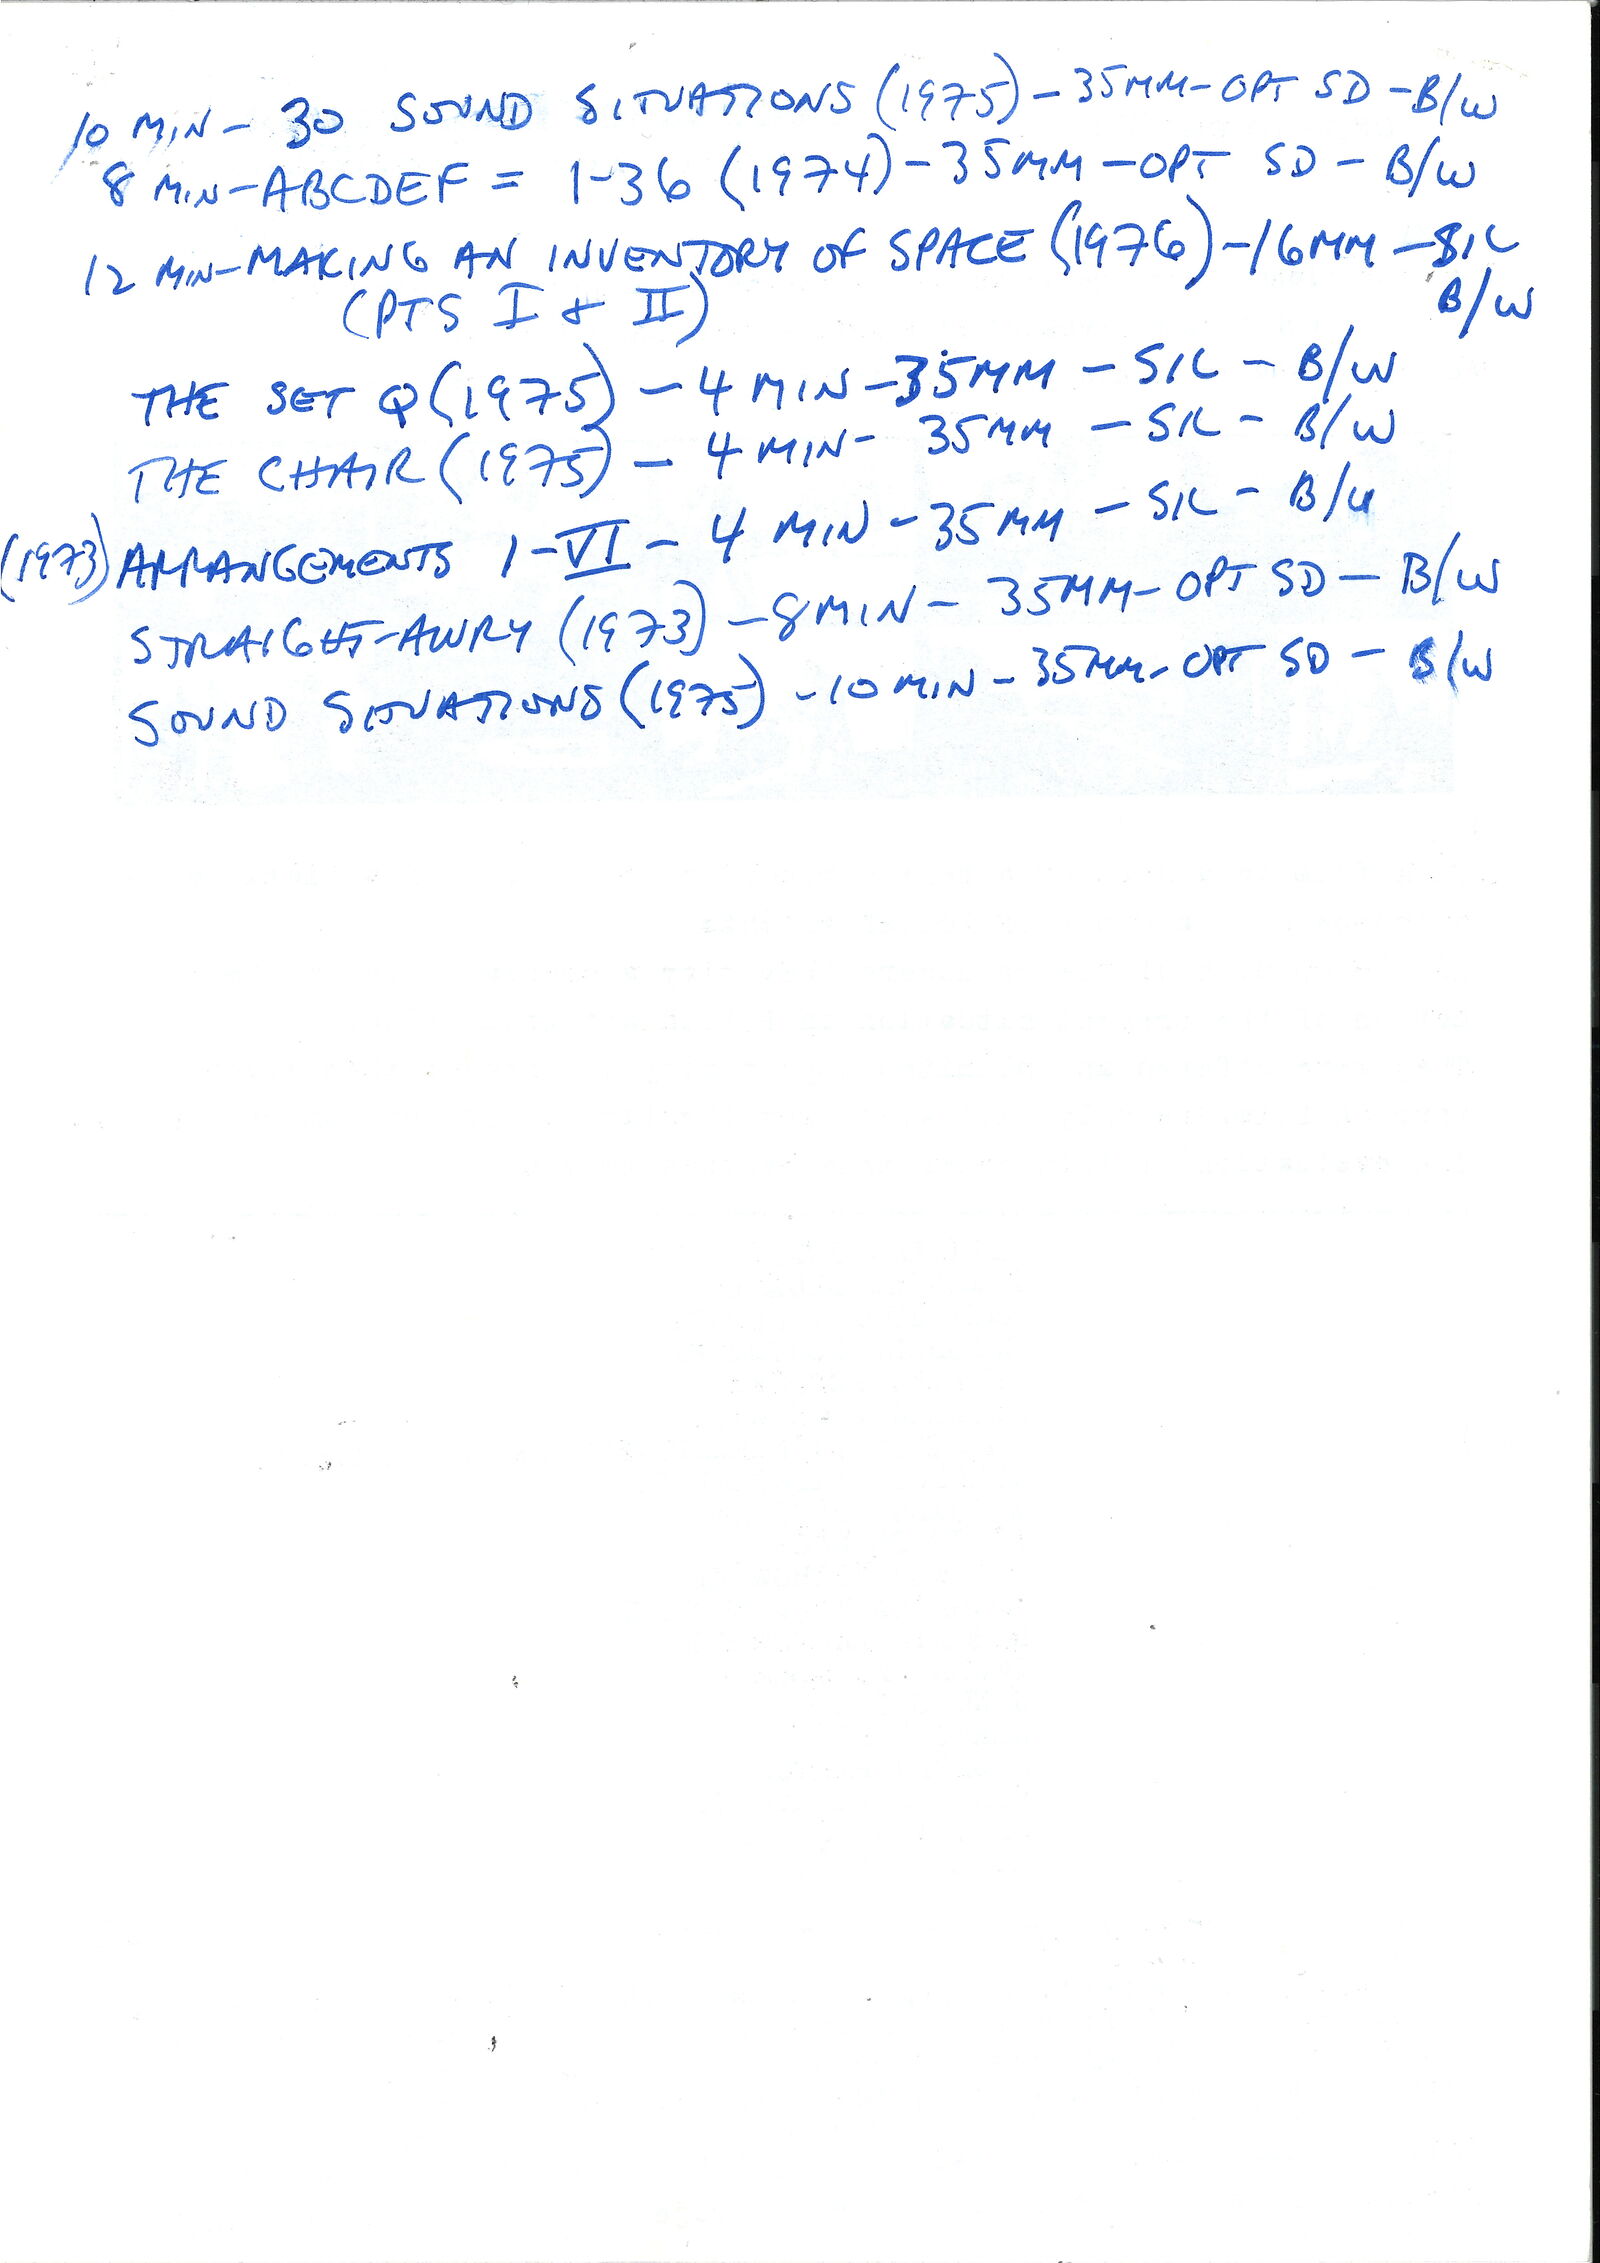 10 MIN - 30 SOUND SITUATIONS (1975) - 35MM - OPT SD - B/W
8 MIN - ABCDEF = 1-36 (1974) - 35MM - OPT SD - B/W
12 MIN - MAKING AN INVENTORY OF SPACE (1976) - 16MM - SIL
(PTS I + II) B/W
THE SET Q (1975) - 4 MIN - 35MM - SIL - B/W
THE CHAIR (1975) - 4 MIN - 35MM - SIL - B/W
(1973) ARRANGEMENTS 1-VI - 4 MIN - 35MM - SIL - B/W
STRAIGHT-AWRY (1973) - 8 MIN - 35MM - OPT SD - B/W
SOUND SITUATIONS (1975) - 10 MIN - 35MM - OPT SD - B/W